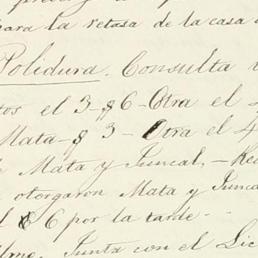 para la retasa de la casa
Polidura. Consulta
tos el 3 $ 6 - Otra el
Mata - $ 3 - Otra el 4
Mata y Juncal, - Rec
otorgaron Mata y Junca
6 por la tarde -
Junta con el Lic